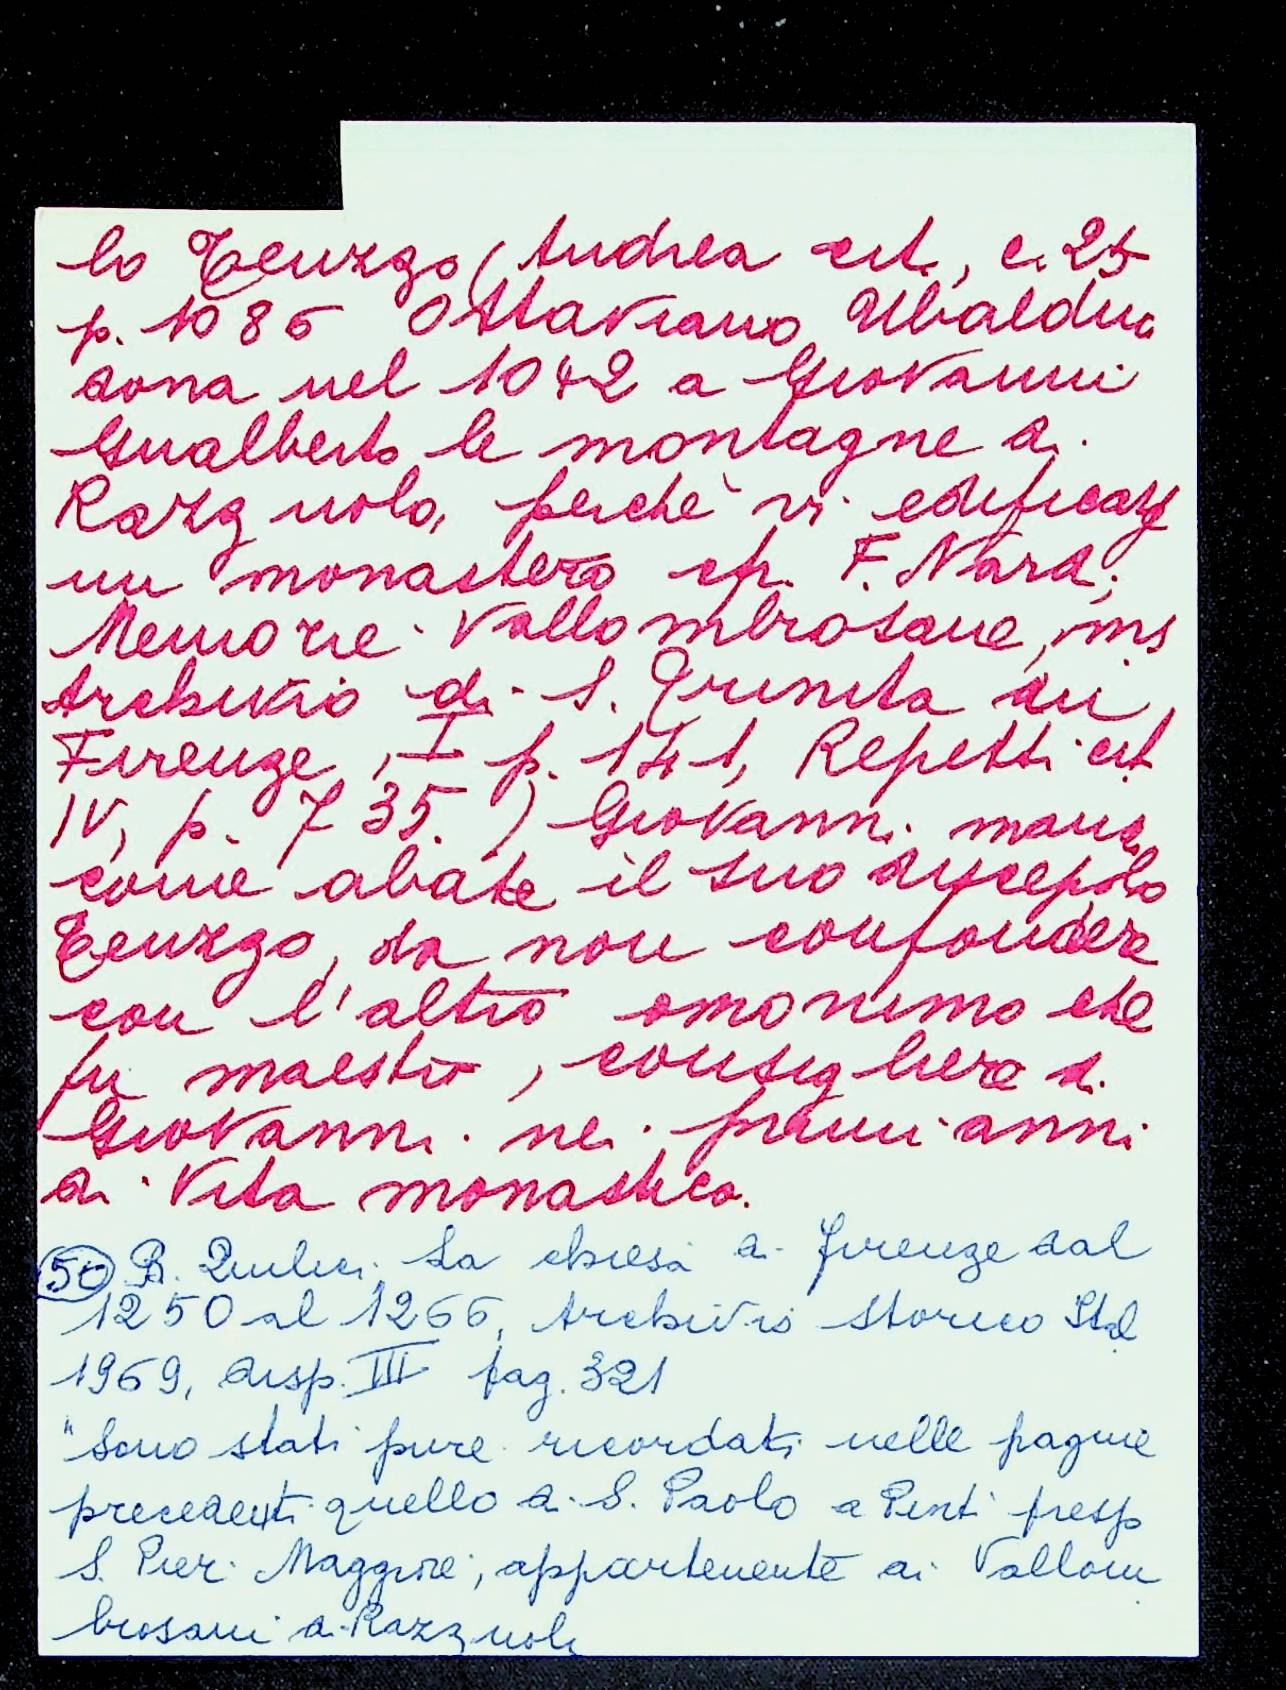 lo Teuzzo (Andrea cit., c. 25
p. 1086 Ottaviano Ubaldini
dona nel 1042 a Giovanni
Gualberto le montagne di
Razzuolo, perchè vi edificasse
un monastero cfr. F. Nardi,
Memorie Vallombrosane, ms
Archivio di S. Trinita di
Firenze, I p. 141, Repetti cit
IV, p. 735.) Giovanni manda
come abate il suo discepolo
Teuzzo, da non confondere
con l'altro omonimo che
fu maestro, consigliere di
Giovanni nei primi anni
di vita monastica.
(50) B. Quilici La chiesa di Firenze dal
1250 al 1266, Archivio Storico Ital
1969, disp. III pag. 321
"Sono stati pure ricordati nelle pagine
precedenti quello di S. Paolo a Pinti presso
S. Pier Maggiore, appartenente ai Vallom
brosani di Razzuolo